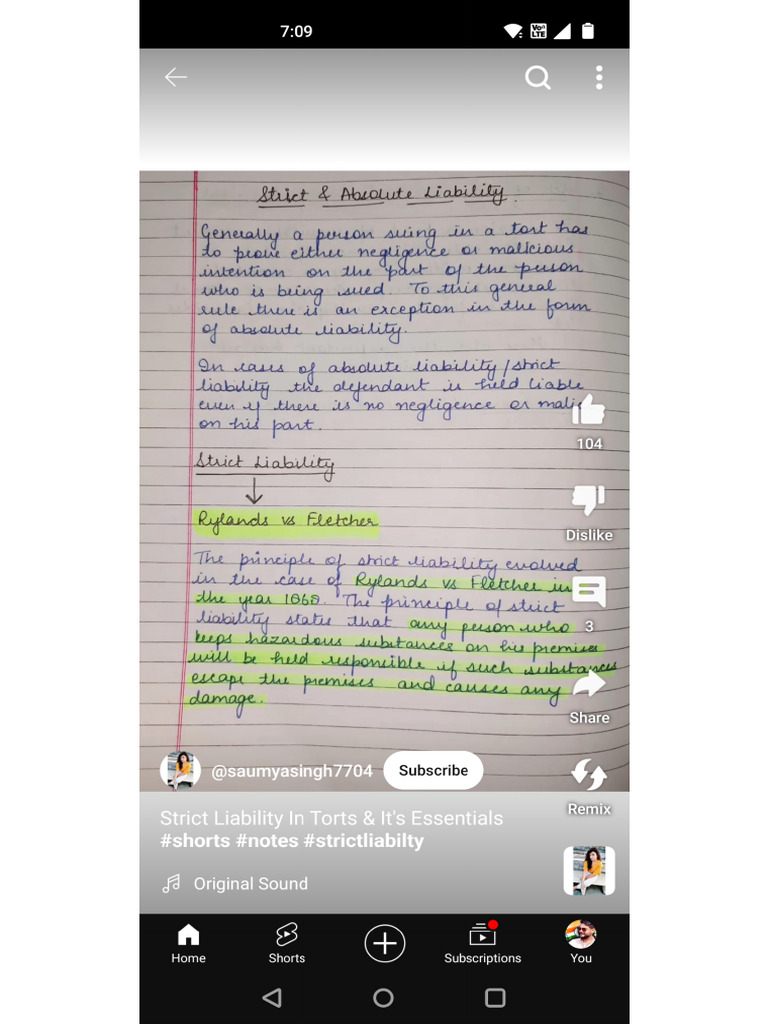 7:09
Vo)) LTE
Strict & Absolute Liability.
Generally a person suing in a tort has
to prove either negligence or malicious
intention on the part of the person
who is being sued. To this general
rule there is an exception in the form
of absolute liability.
In cases of absolute liability/strict
liability the defendant is held liable
even if there is no negligence or
on his part.
104
Strict Liability
Rylands vs Fletcher
Dislike
The principle of strict liability evolved
in the case of Rylands vs Fletcher in
the year 1868. The principle of strict
liability states that any person who
3
keeps hazardous substances on his premises
will be held responsible if such substances
escape the premises and causes any
damage.
Share
@saumyasingh7704 Subscribe
Remix
Strict Liability In Torts & It's Essentials
#shorts #notes #strictliabilty
Original Sound
Home Shorts Subscriptions You